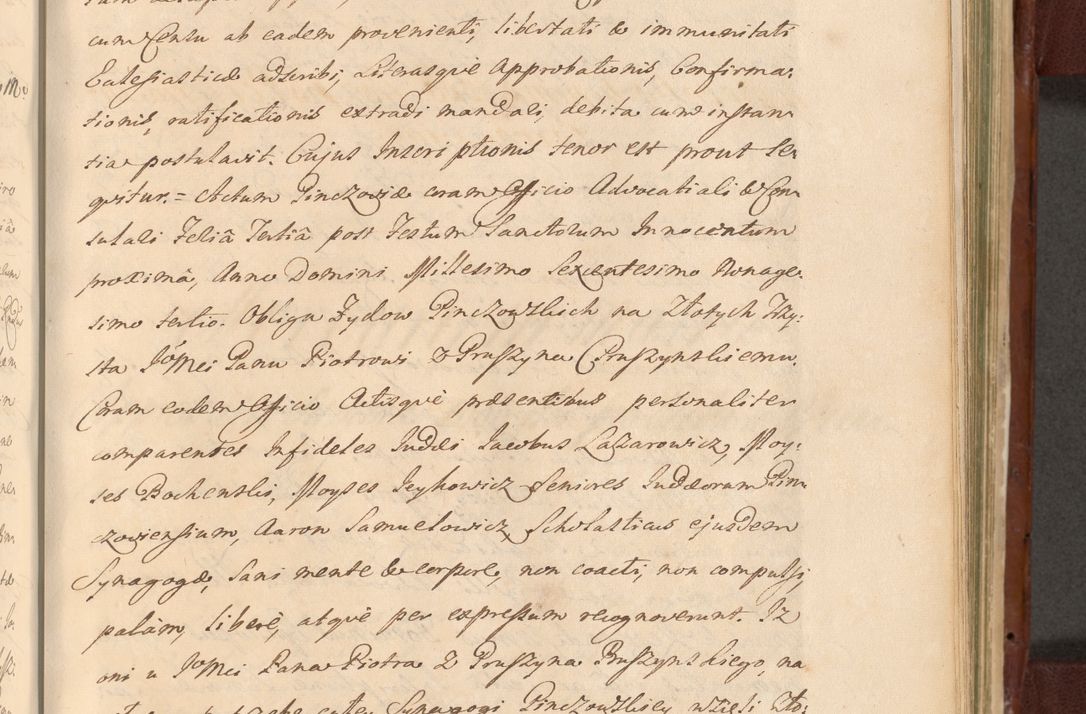 cum Censu ab eadem provenienti, libertati & immunitati
Eccleſiasticæ adscribi, Literasque Approbationis, Confirma:
tionis, ratificationis extradi mandari, debita cum instan
tia postulavit. Cujus Inscriptionis tenor est prout se
quitur. = Actum Pinczoviæ coram Officio Advocatiali & Con
sulari Feriâ Tertiâ post Festum Sanctorum Innocentum
proximâ, Anno Domini Millesimo Sexcentesimo Nonage
simo tertio. Obliga Zydow Pinczowſkich na Złotych Trzy:
sta JoMci Panu Piotrowi z Pruſzyna Pruſzynskiemu.
Coram eodem Officio Actisque præsentibus personaliter
comparentes Infideles Judæi Jacobus Lazarowicz, Moy:
ses Bochenski, Moyses Jeykowicz Seniores Judæorum Pin
czoviensium, Aaron Samuelowicz Scholasticus ejusdem
Synagogæ, sani mente & corpore, non coacti, non compulsi,
palàm, liberè, atque per expreſsum recognoverunt. Iz
oni u JoMci Pana Piotra z Pruſzyna Pruſzynskiego, na
Synagogi Pinczowſkiey wzieli Zło: